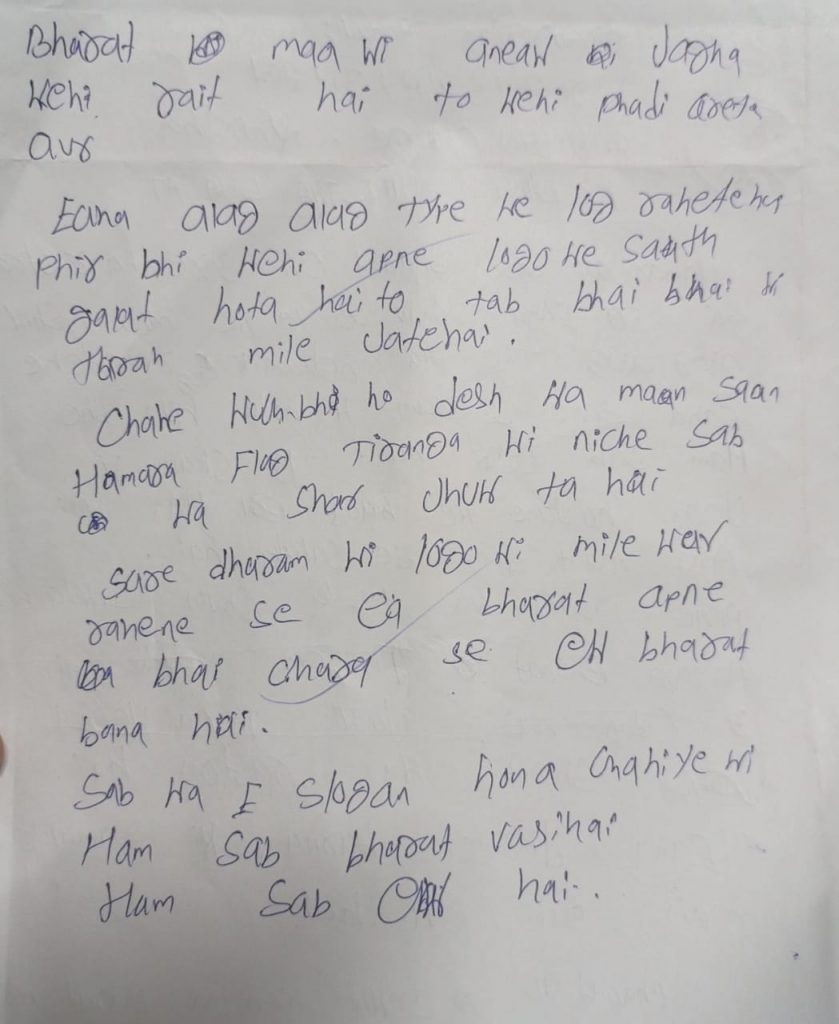 Bharat maa ki aneak jagha
kehi rait hai to kehi phadi areya
aur
Eana alag alag type ke log rahetehy
Phir bhi kehi apne logo ke saath
galat hota hai to tab bhai bhai ki
tarah mile Jatehai.
Chahe kuch-bhi ho desh ka maan saan
Hamara Flag Tiranga ki niche sab
ka shar Jhuk ta hai
sare dharam ki logo ki mile kar
rahene se ea bharat apne
bhai chara se ek bharat
bana hai.
Sab ka E Slogan hona chahiye ki
Ham Sab bharat vasihai
Ham Sab hai.